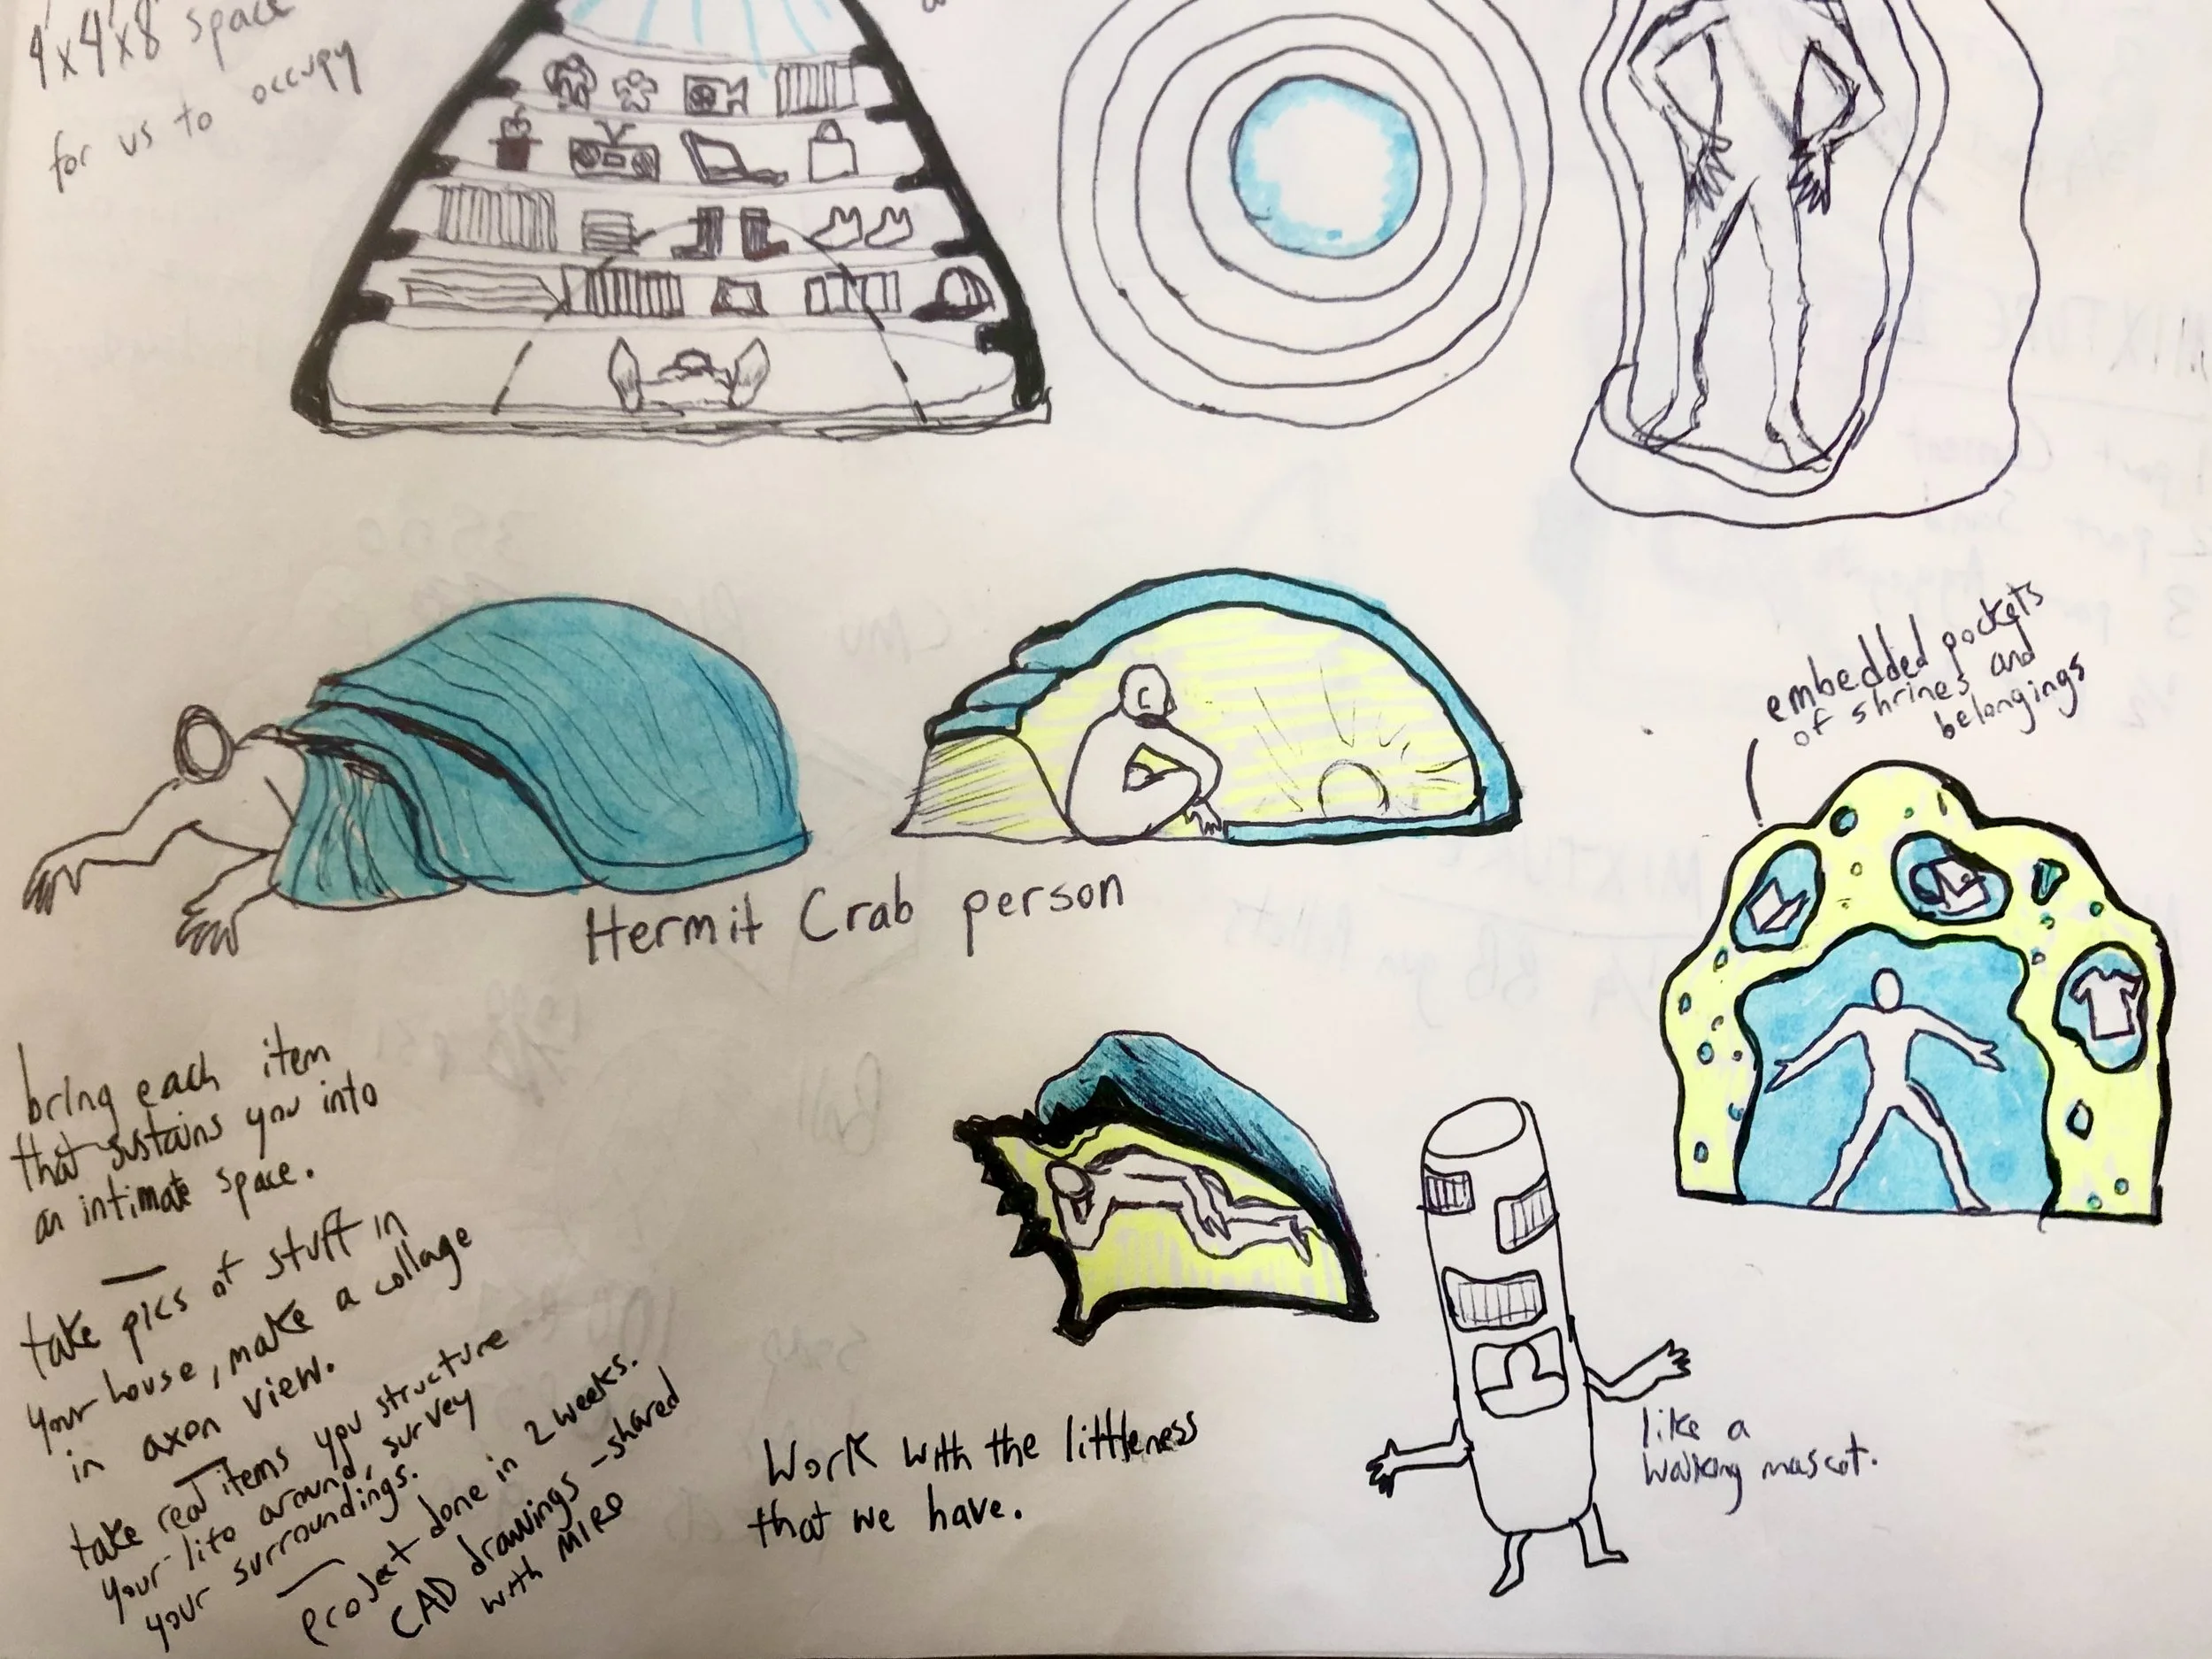 4'x4'x8' space
for us to occupy
embedded pockets
of shrines and
belongings
Hermit Crab person
bring each item
that sustains you into
an intimate space.
take pics of stuff in
your house, make a collage
in axon view.
take real items you structure
your life around, survey
your surroundings.
project done in 2 weeks.
CAD drawings - shared
with MIRO
Work with the littleness
that we have.
like a
walking mascot.